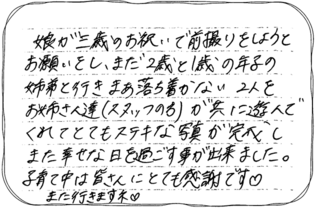 娘が三歳のお祝いで前撮りをしようと
お願いをし、まだ2歳と1歳の年子の
姉弟と行きまあ落ち着かない2人を
お姉さん達(スタッフの方)が共に遊んで
くれてとてもステキな写真が完成し
また幸せな日を過ごす事が出来ました。
子育て中は皆さんにとても感謝です♡
また行きますネ♡